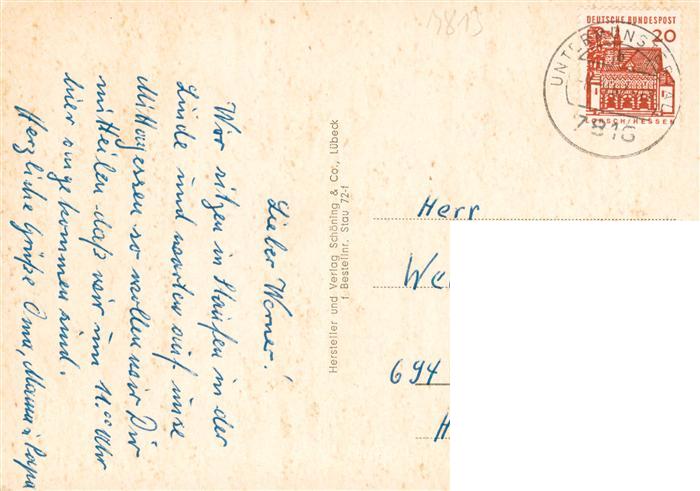 Lieber Werner!
Wir sitzen in Staufen in der
Linde und warten auf unse
Mittagessen so wollen wir Dir
mitteilen daß wir um 11.00 Uhr
hier angekommen sind.
Herzliche Grüße Oma, Mama u Papa
Hersteller und Verlag Schöning & Co., Lübeck
f. Bestellnr. Stau 72-f
DEUTSCHE BUNDESPOST
20
LORSCH/HESSEN
7816
7813
Herr
We
694
H